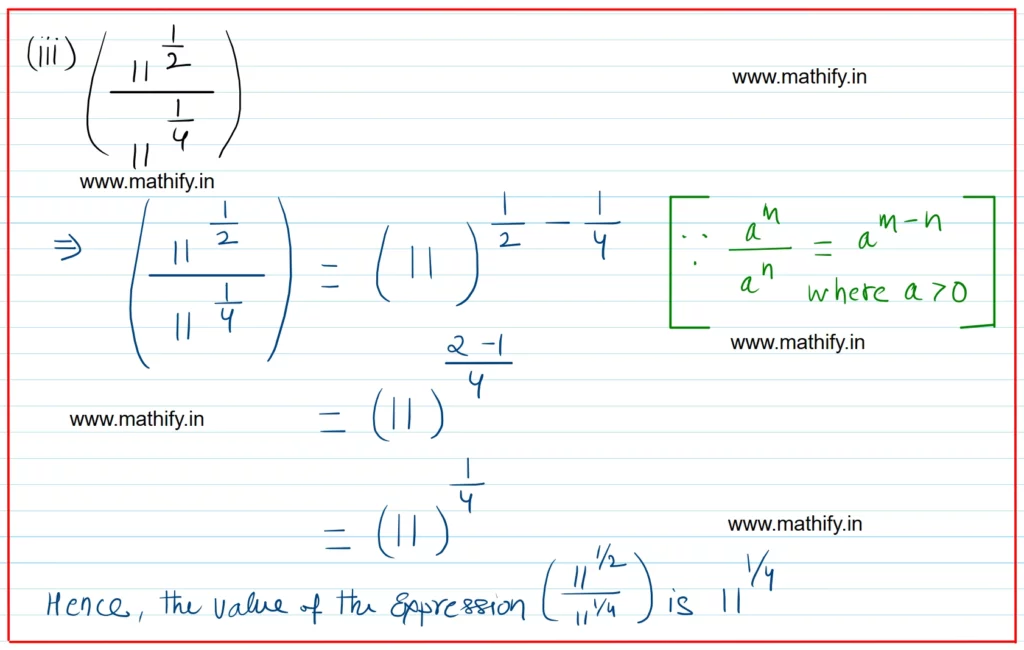 (iii) (11^(1/2) / 11^(1/4))
www.mathify.in
www.mathify.in
⇒ (11^(1/2) / 11^(1/4)) = (11)^(1/2 − 1/4) [∵ a^m / a^n = a^(m−n)
where a>0]
www.mathify.in
= (11)^((2−1)/4)
www.mathify.in
= (11)^(1/4)
www.mathify.in
Hence, the value of the Expression (11^(1/2) / 11^(1/4)) is 11^(1/4)